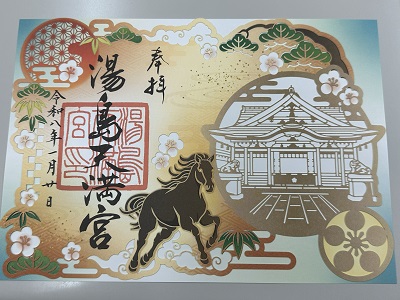 奉拝
湯島天満宮
令和八年一月廿日